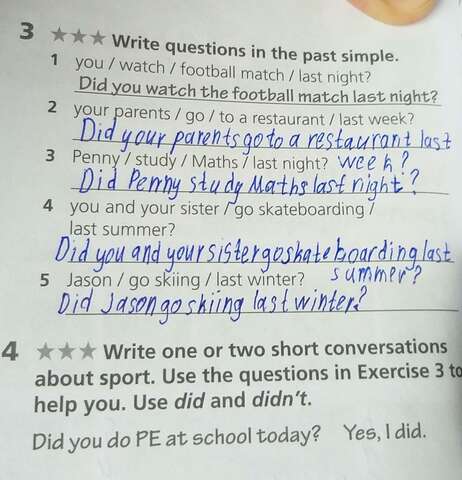 3 ★★★ Write questions in the past simple.
1 you / watch / football match / last night?
Did you watch the football match last night?
2 your parents / go / to a restaurant / last week?
Did your parents go to a restaurant last
week?
3 Penny / study / Maths / last night?
Did Penny study Maths last night?
4 you and your sister / go skateboarding /
last summer?
Did you and your sister go skateboarding last
summer?
5 Jason / go skiing / last winter?
Did Jason go skiing last winter?
4 ★★★ Write one or two short conversations
about sport. Use the questions in Exercise 3 to
help you. Use did and didn't.
Did you do PE at school today? Yes, I did.